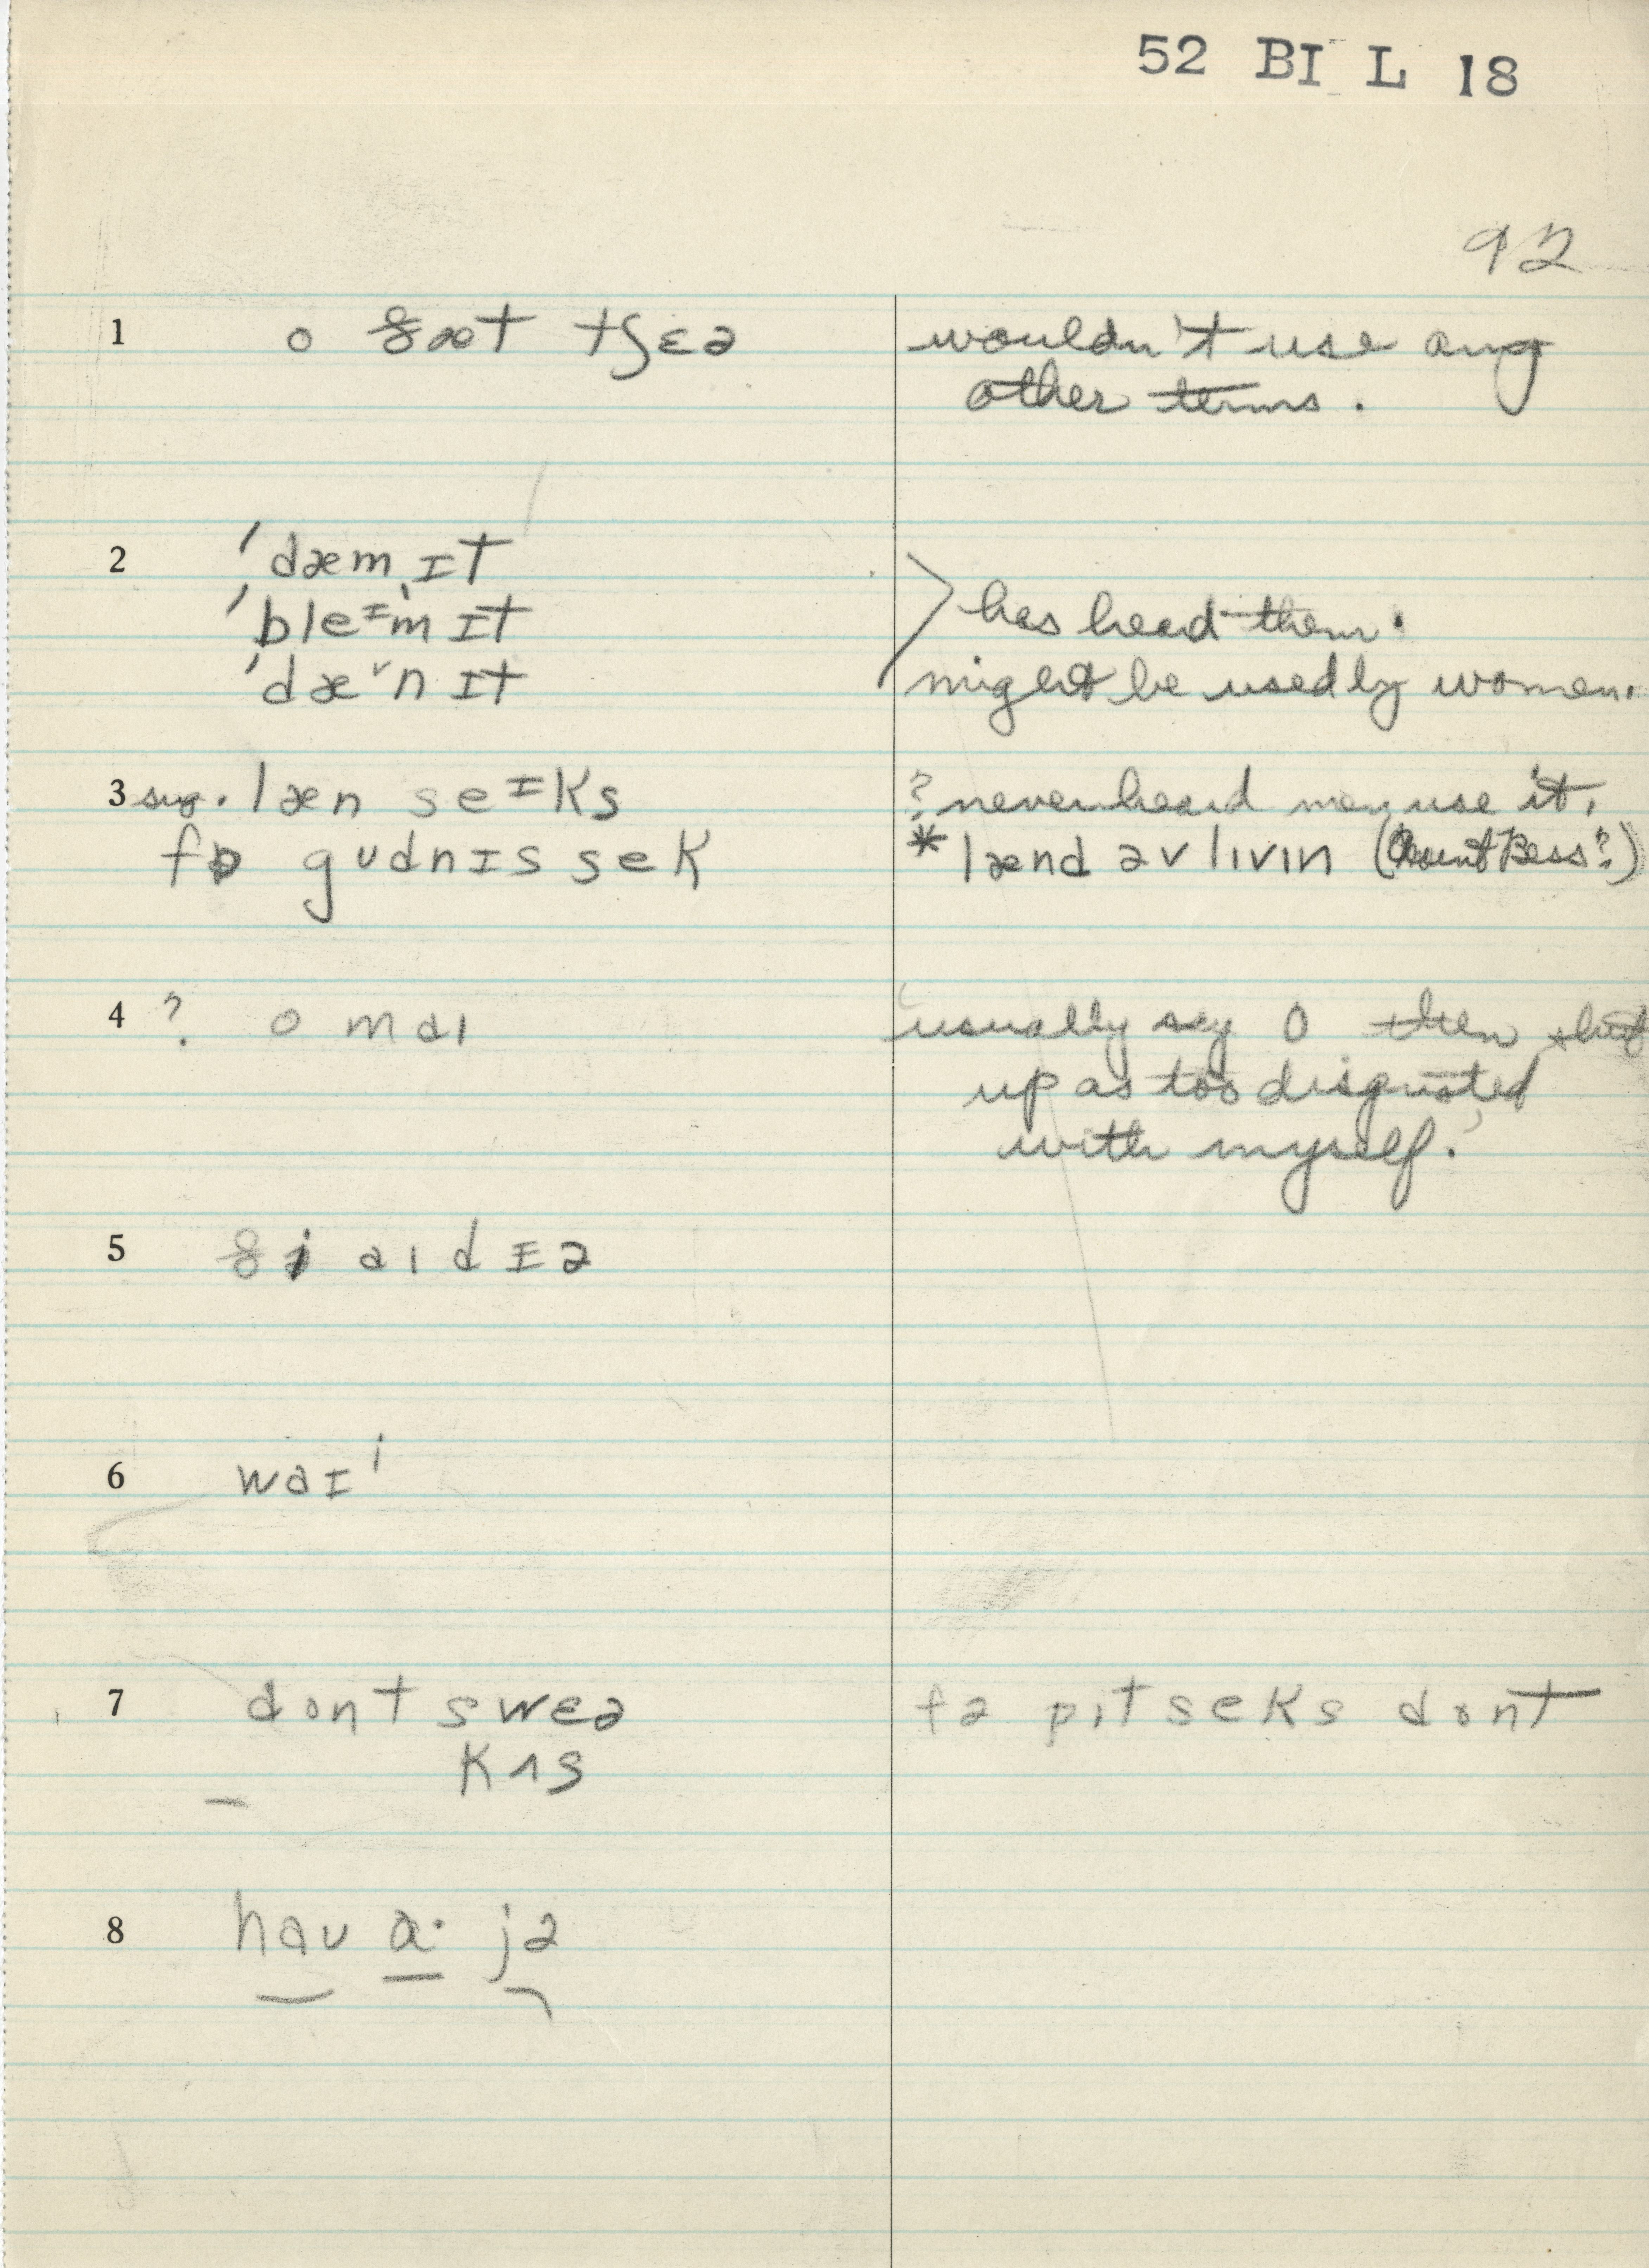 52 BI L 18
92
1 o ðæt tʃɛə wouldn't use any
other terms.
2 'dæm ɪt
'bleɪm ɪt has heard them.
'dæ˅n ɪt might be used by women.
3 sug. læn seɪks ? never heard men use it.
fɒ gʊdnɪs sek * lænd əv lɪvɪn (Aunt Bess?)
4 ? o maɪ 'usually say O then shut
up as too disgusted
with myself.'
5 ði aɪdɪə
6 waɪ'
7 dont swɛə fə pɪt seks dont
kʌs
8 haʊ a· jə